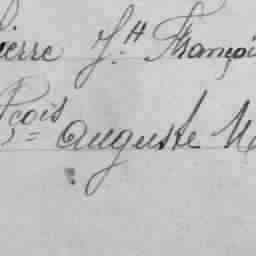 ierre J.H Françoi
çois = Auguste